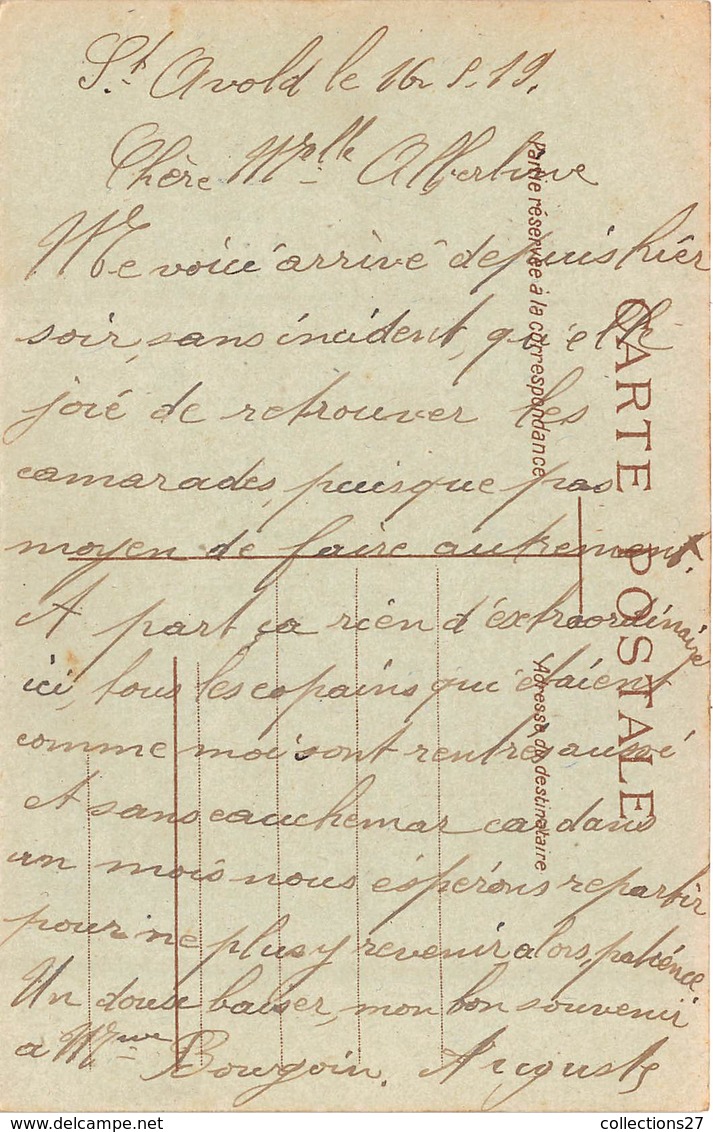 St Avold le 16 8.19.
Chère Melle Albertine
Me voici arrivé depuis hier
soir, sans incident, qu'elle
joie de retrouver les
camarades, puisque pas
moyen de faire autrement.
A part ça rien d'extraordinaire
ici, tous les copains qui étaient
comme moi sont rentrés aussi
et sans cauchemar car dans
un mois nous éspérons repartir
pour ne plus y revenir alors, patience
Un doux baiser, mon bon souvenir
a Mme Bourgoin. Auguste
Partie réservée à la correspondance
CARTE POSTALE
Adresse du destinataire
collections27